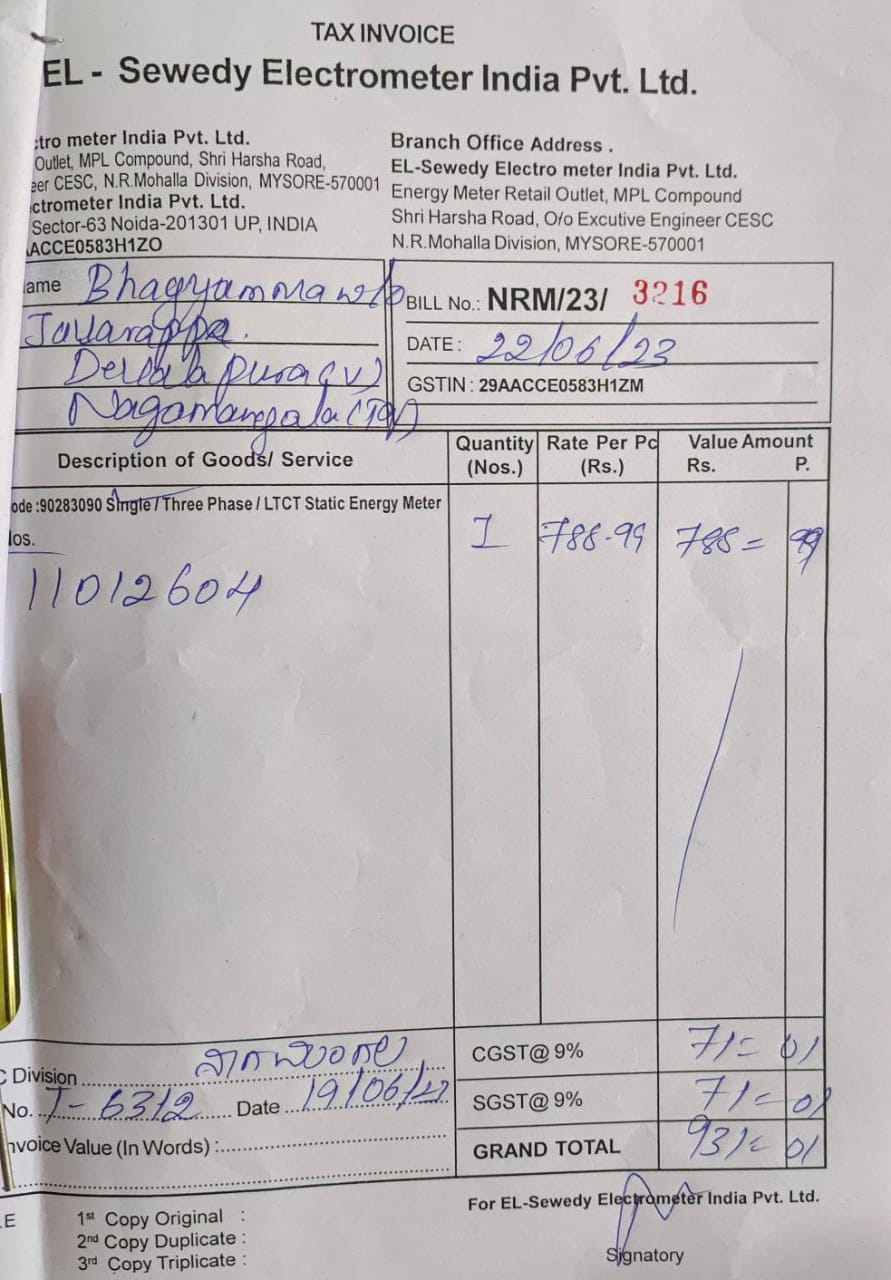 TAX INVOICE
EL - Sewedy Electrometer India Pvt. Ltd.
tro meter India Pvt. Ltd.
Outlet, MPL Compound, Shri Harsha Road,
er CESC, N.R.Mohalla Division, MYSORE-570001
ctrometer India Pvt. Ltd.
Sector-63 Noida-201301 UP, INDIA
AACCE0583H1ZO
Branch Office Address .
EL-Sewedy Electro meter India Pvt. Ltd.
Energy Meter Retail Outlet, MPL Compound
Shri Harsha Road, O/o Excutive Engineer CESC
N.R.Mohalla Division, MYSORE-570001
ame Bhagyamma w/o
Javarappa.
(V)
Nagamangala (Tq)
BILL No.: NRM/23/ 3216
DATE : 22/06/23
GSTIN : 29AACCE0583H1ZM
Description of Goods/ Service
Quantity (Nos.)
Rate Per Pc (Rs.)
Value Amount
Rs. P.
ode :90283090 Single / Three Phase / LTCT Static Energy Meter
los.
1 788-99 788= 99
11012604
C Division ನಾಗಮಂಗಲ
No. T-6312 Date 19/06/23
nvoice Value (In Words) :
CGST@ 9% 71= 01
SGST@ 9% 71= 01
GRAND TOTAL 931= 01
For EL-Sewedy Electrometer India Pvt. Ltd.
Signatory
E
1st Copy Original :
2nd Copy Duplicate :
3rd Copy Triplicate :